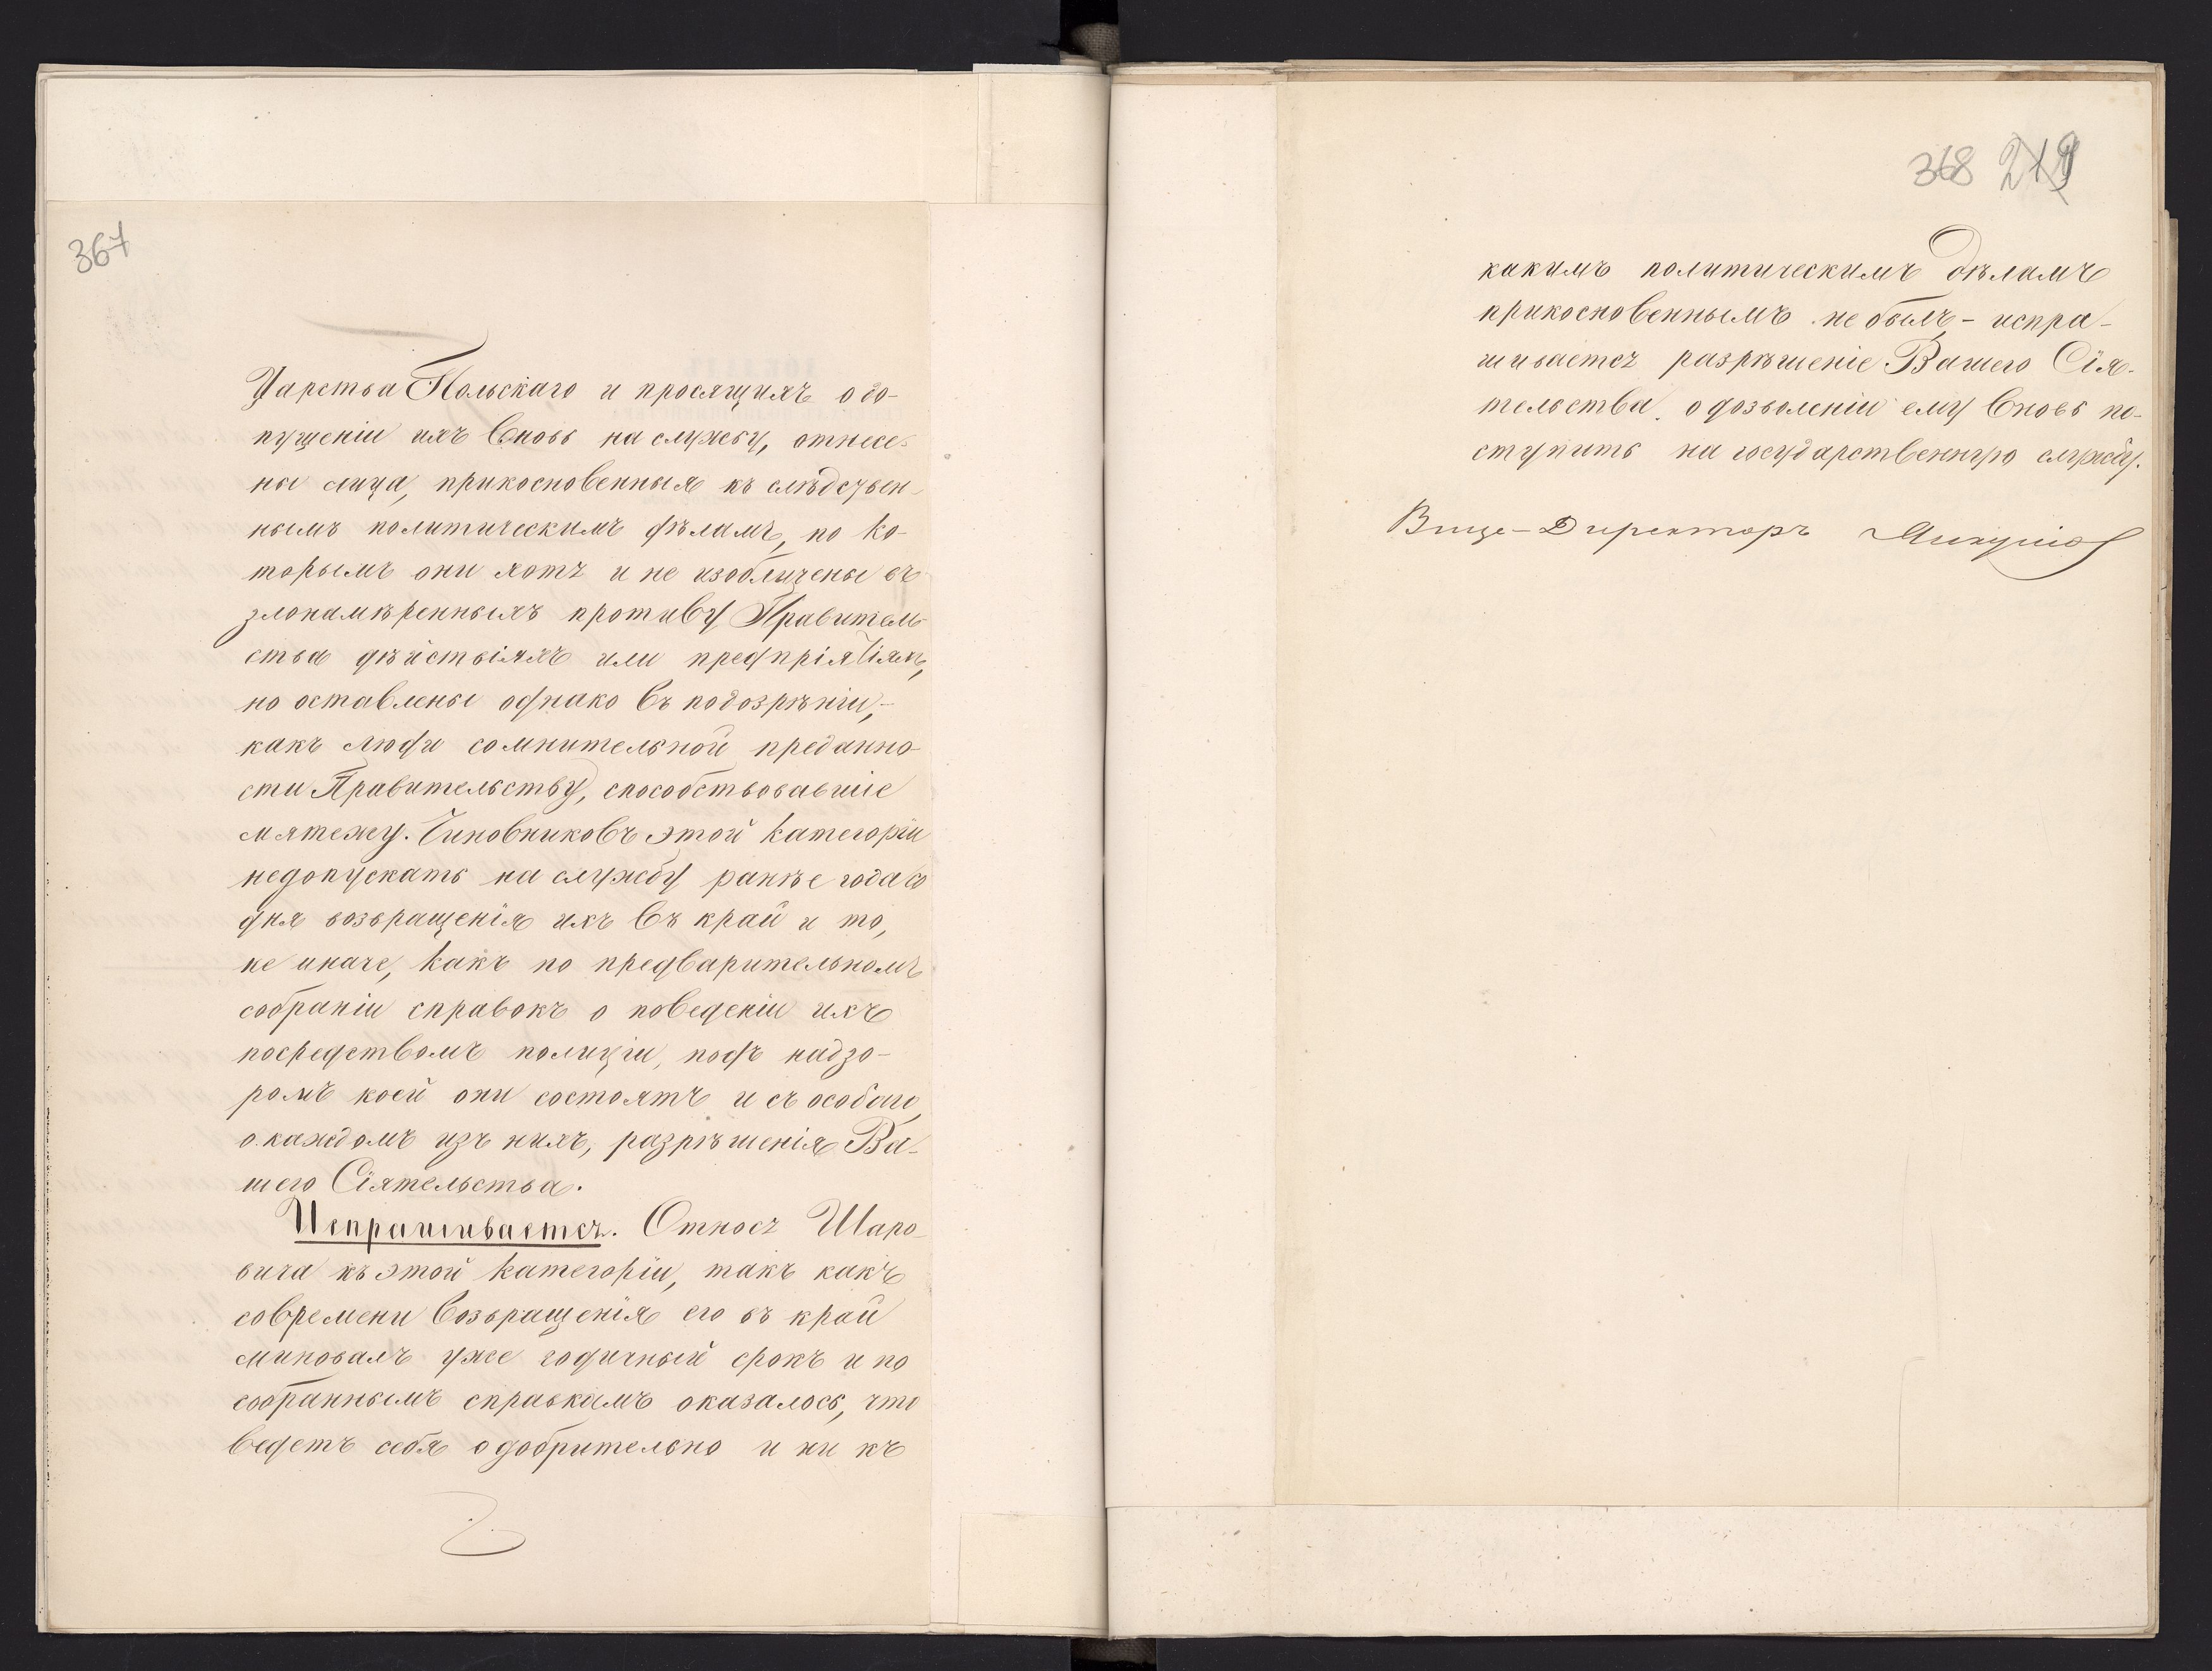 367
Царства Польскаго и просящихъ о до-
пущеніи ихъ вновь на службу, отнесе-
ны лица, прикосновенныя къ слѣдствен-
нымъ политическимъ дѣламъ, по ко-
торымъ они хотя и не изобличены въ
злонамѣренныхъ противу Правитель-
ства дѣйствіяхъ или предпріятіяхъ,
но оставлены однако въ подозрѣніи,-
какъ люди сомнительной преданно-
сти Правительству, способствовавшіе
мятежу. Чиновниковъ этой категоріи
недопускать на службу ранѣе года со
дня возвращенія ихъ въ край и то,
не иначе, какъ по предварительномъ
собраніи справокъ о поведеніи ихъ
посредствомъ полиціи, подъ надзо-
ромъ коей они состоятъ и съ особаго,
о каждомъ изъ нихъ, разрѣшенія Ва-
шего Сіятельства.
Испрашивается. Относя Шаро-
вича къ этой категоріи, такъ какъ
современи возвращенія его въ край
миновалъ уже годичный срокъ и по
собраннымъ справкамъ оказалось, что
ведетъ себя одобрительно и ни къ
368 219
какимъ политическимъ дѣламъ
прикосновеннымъ не былъ - испра-
шивается разрѣшеніе Вашего Сія-
тельства, о дозволеніи ему вновь по-
ступить на государственную службу.
Вице-Директоръ